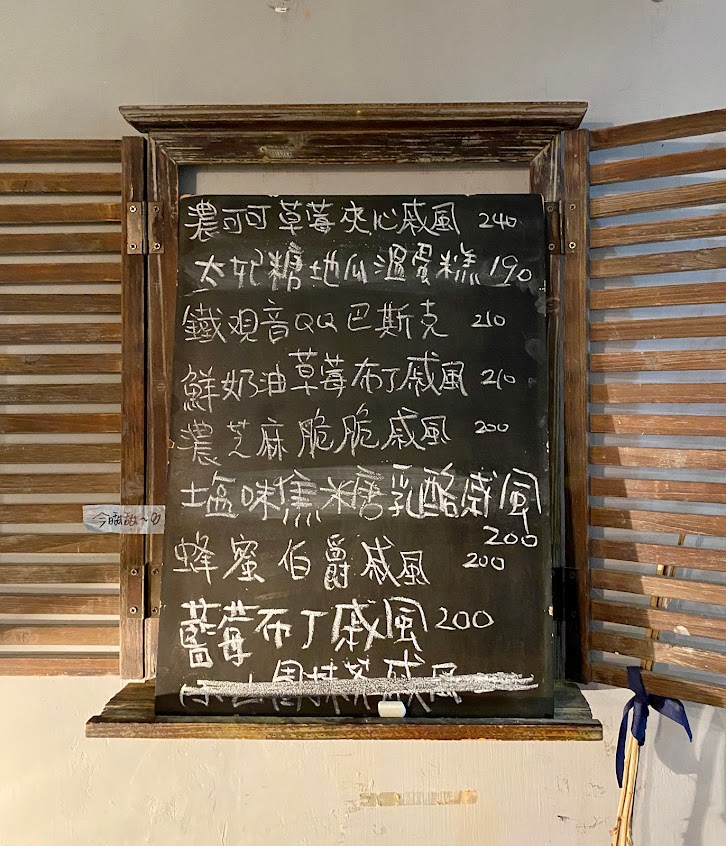 濃可可草莓夾心戚風 240
太妃糖地瓜溫蛋糕 190
鐵観音QQ巴斯克 210
鮮奶油草莓布丁戚風 210
濃芝麻脆脆戚風 200
塩味焦糖乳酪戚風
200
蜂蜜伯爵戚風 200
藍莓布丁戚風 200
抹茶戚風